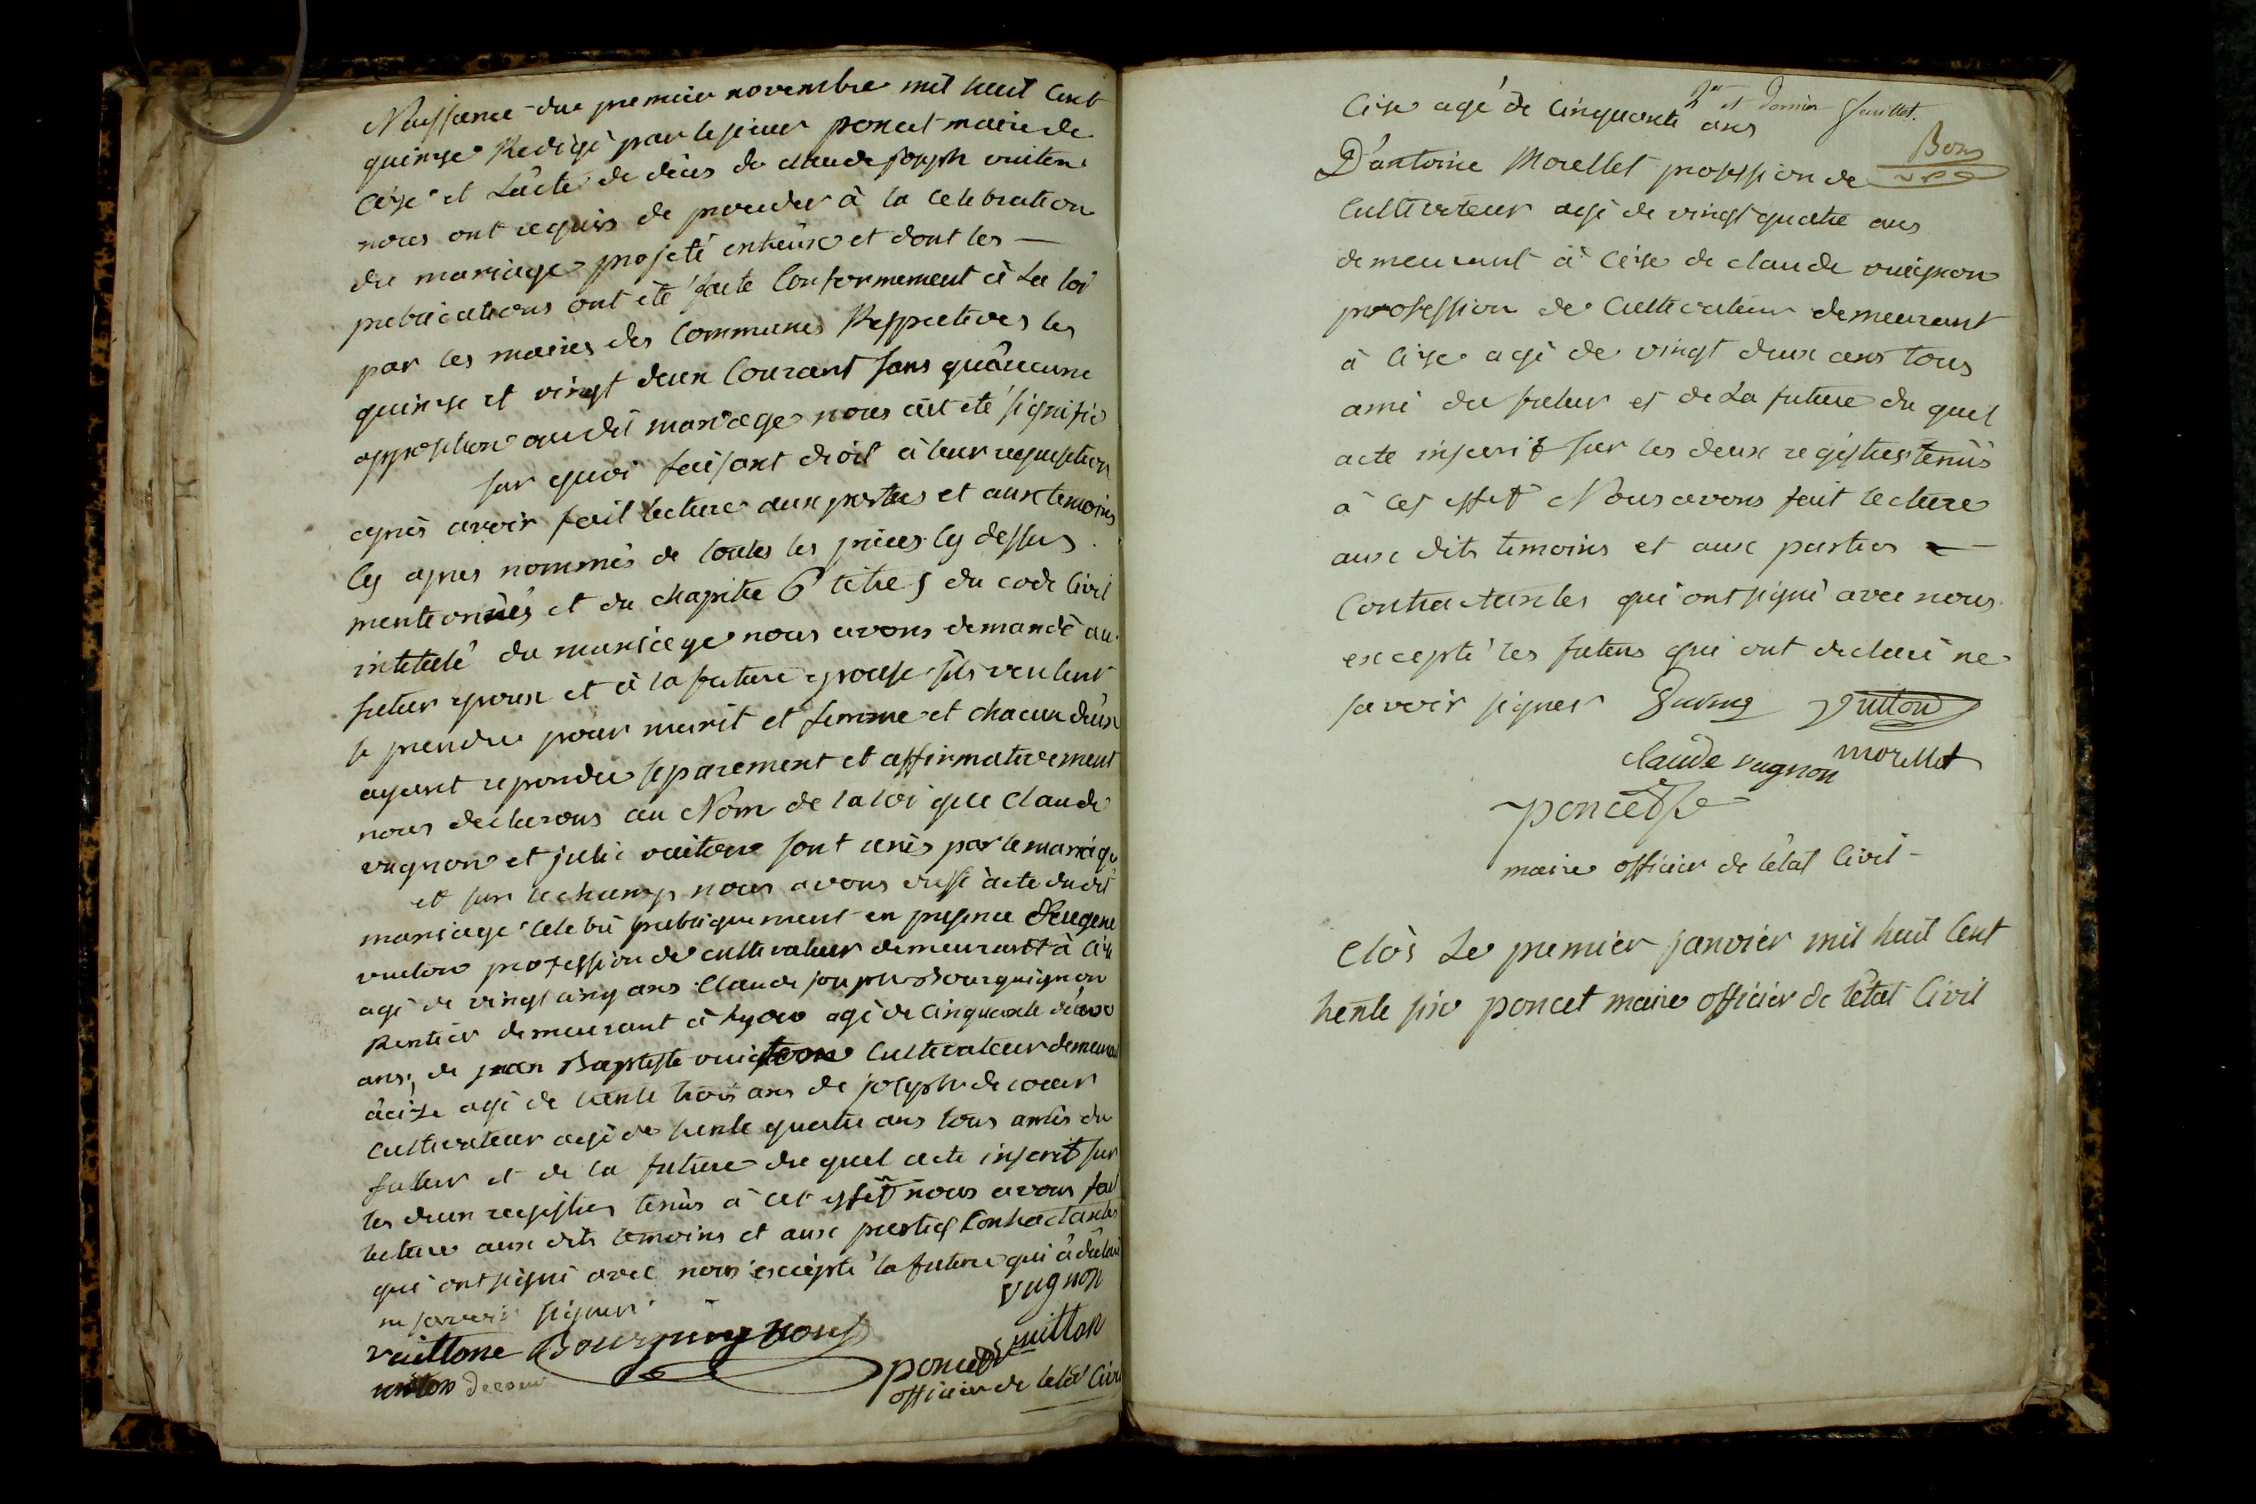 Naissance du premier novembre mil huit Cent
quinze Redigé par le sieur poncet maire de
Cize et L'acte de déces de claude joseph vuiton
nous ont requis de proceder à la celebration
du mariage projeté entreux et dont les —
publications ont été faite Conformement à La loi
par les maires des Communes Respectives les
quinze et vingt deux Courant sans quaucune
opposition audit mariage nous ait été signifié
sur quoi faisant droit à leur requisition
apres avoir fait lecture aux parties et aux temoins
Cy apres nommés de toutes les pieces Cy dessus
mentionnés et du chapitre 6 titre 5 du code Civil
intitulé du mariage nous avons demandé au
futur epoux et à la future epouse sils veulent
se prendre pour marit et femme et chacun d'eux
ayant repondu separement et affirmativement
nous declarons au Nom de la loi que Claude
vugnon et julie vuiton sont unis par le mariage
et sur le champ nous avons dressé acte dudit
mariage celebré publiquement en presence d'eugene
vuiton profession de cultivateur demeurant à Cize
agé de vingt cinq ans Claude joseph Bourguignon
Rentier demeurant à Lyon agé de Cinquante deux
ans, de jean Baptiste vuiton Cultivateur demeurant
à Cize agé de trente trois ans de joseph decoeur
Cultivateur agé de trente quatre ans tous amis du
futur et de la future du quel acte inscrit sur
les deux registres tenus à cet effet nous avons fait
lecture aux dits temoins et aux parties Contractantes
qui ont signé avec nous excepté la future qui à déclaré
ne savoir signer
vugnon
vuittone Bourguignon
poncet vuitton
vuiton decoeur
officier de letat Civil
2er et dernier feuillet.
Cize agé de Cinquante ans
Bon
D'antoine Morellet profession de
Cultivateur agé de vingt quatre ans
demeurant à Cize de claude vuignon
profession de Cultivateur demeurant
à Cize agé de vingt deux ans tous
ami du futur et de La future du quel
acte inscrit sur les deux registres tenus
à cet effet Nous avons fait lecture
aux dits temoins et aux parties —
Contractantes qui ont signé avec nous
excepté les futurs qui ont declaré ne
savoir signer vuitton
claude vugnon morellet
poncet
maire officier de l'état Civil -
Clos Le premier janvier mil huit Cent
trente six poncet maire officier de l'état Civil